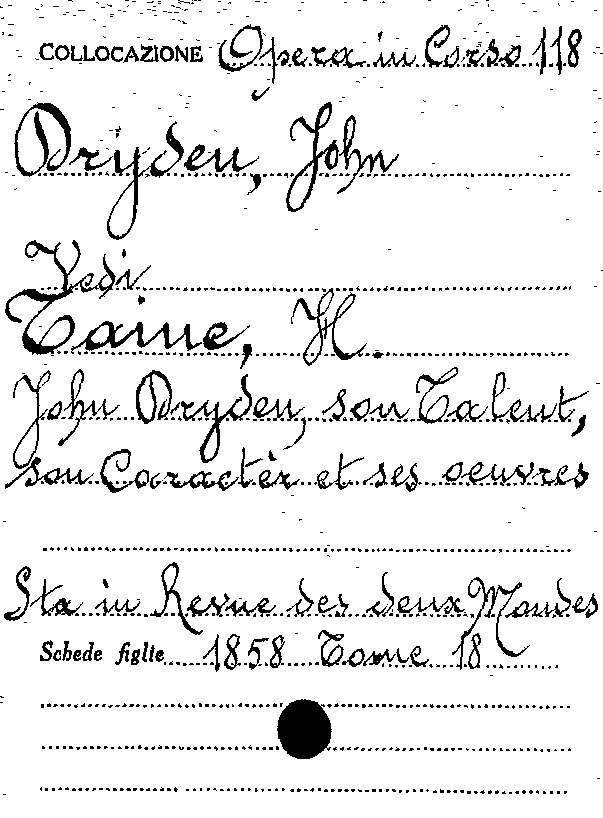 COLLOCAZIONE Opera in Corso 118
Dryden, John
Vedi
Taine, H.
John Dryden, son Talent,
son Caractèr et ses oeuvres
Sta in Revue des deux Mondes
Schede figlie 1858 Tome 18